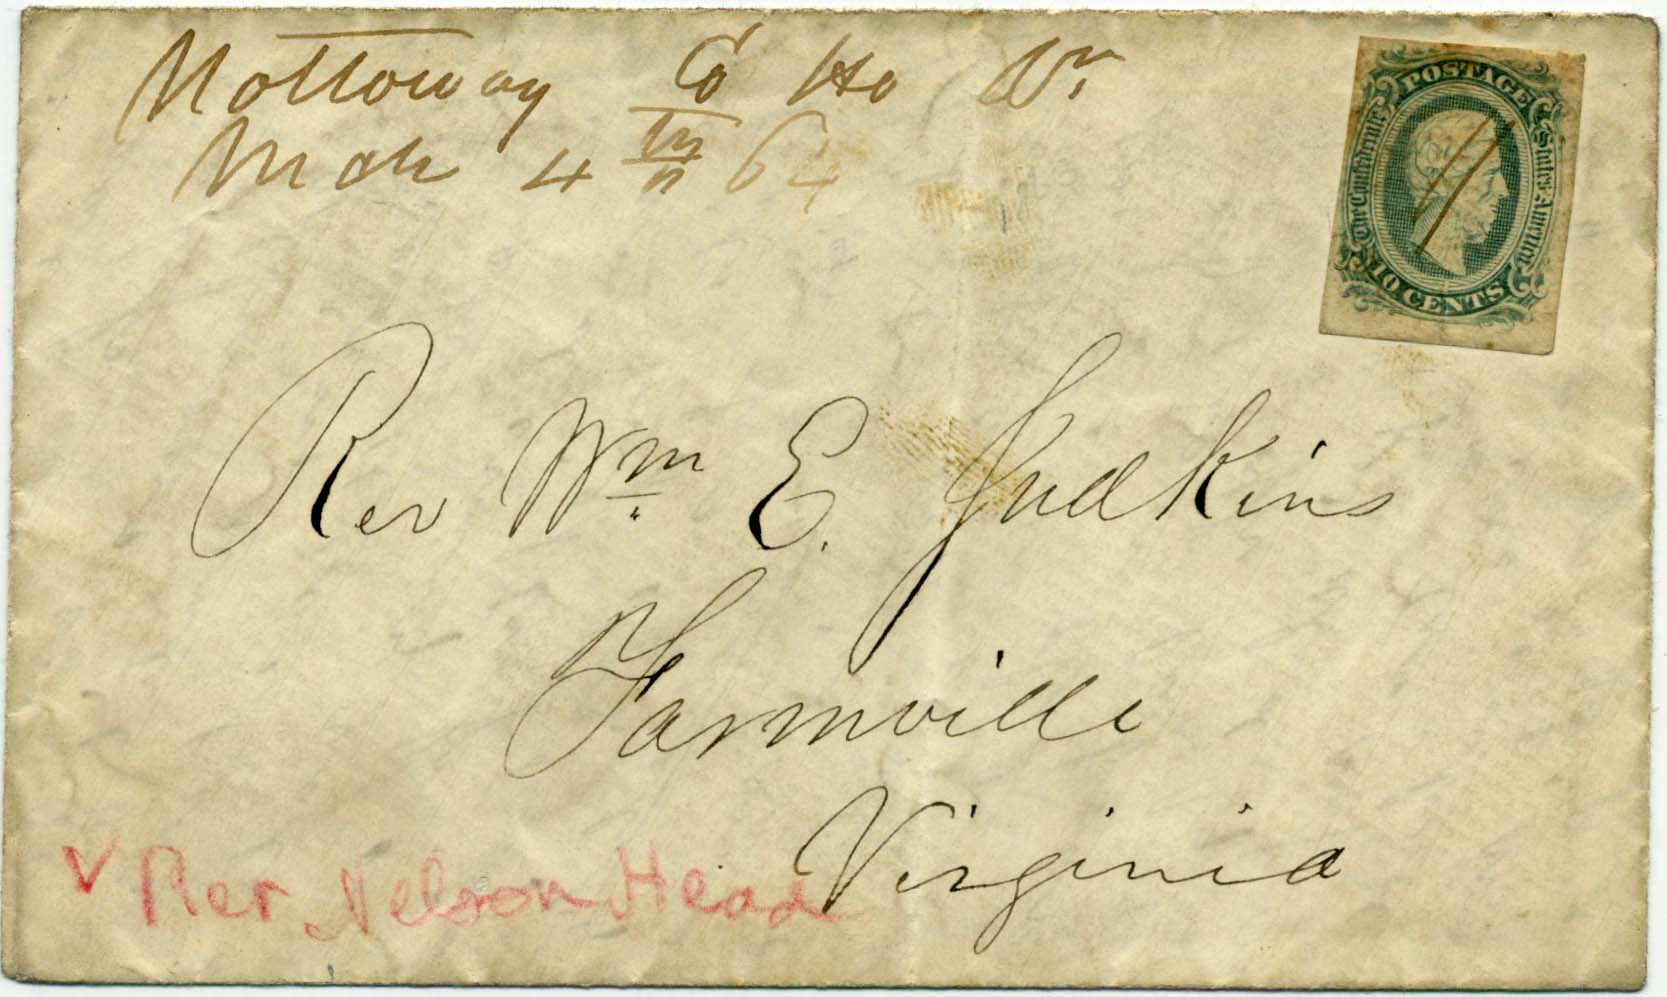 Nottoway Co Ho Va.
Mch 4th 64
POSTAGE
The Confederate
States America
10 CENTS
Rev Wm E. Judkins
Farmville
Virginia
v Rev. Nelson Head